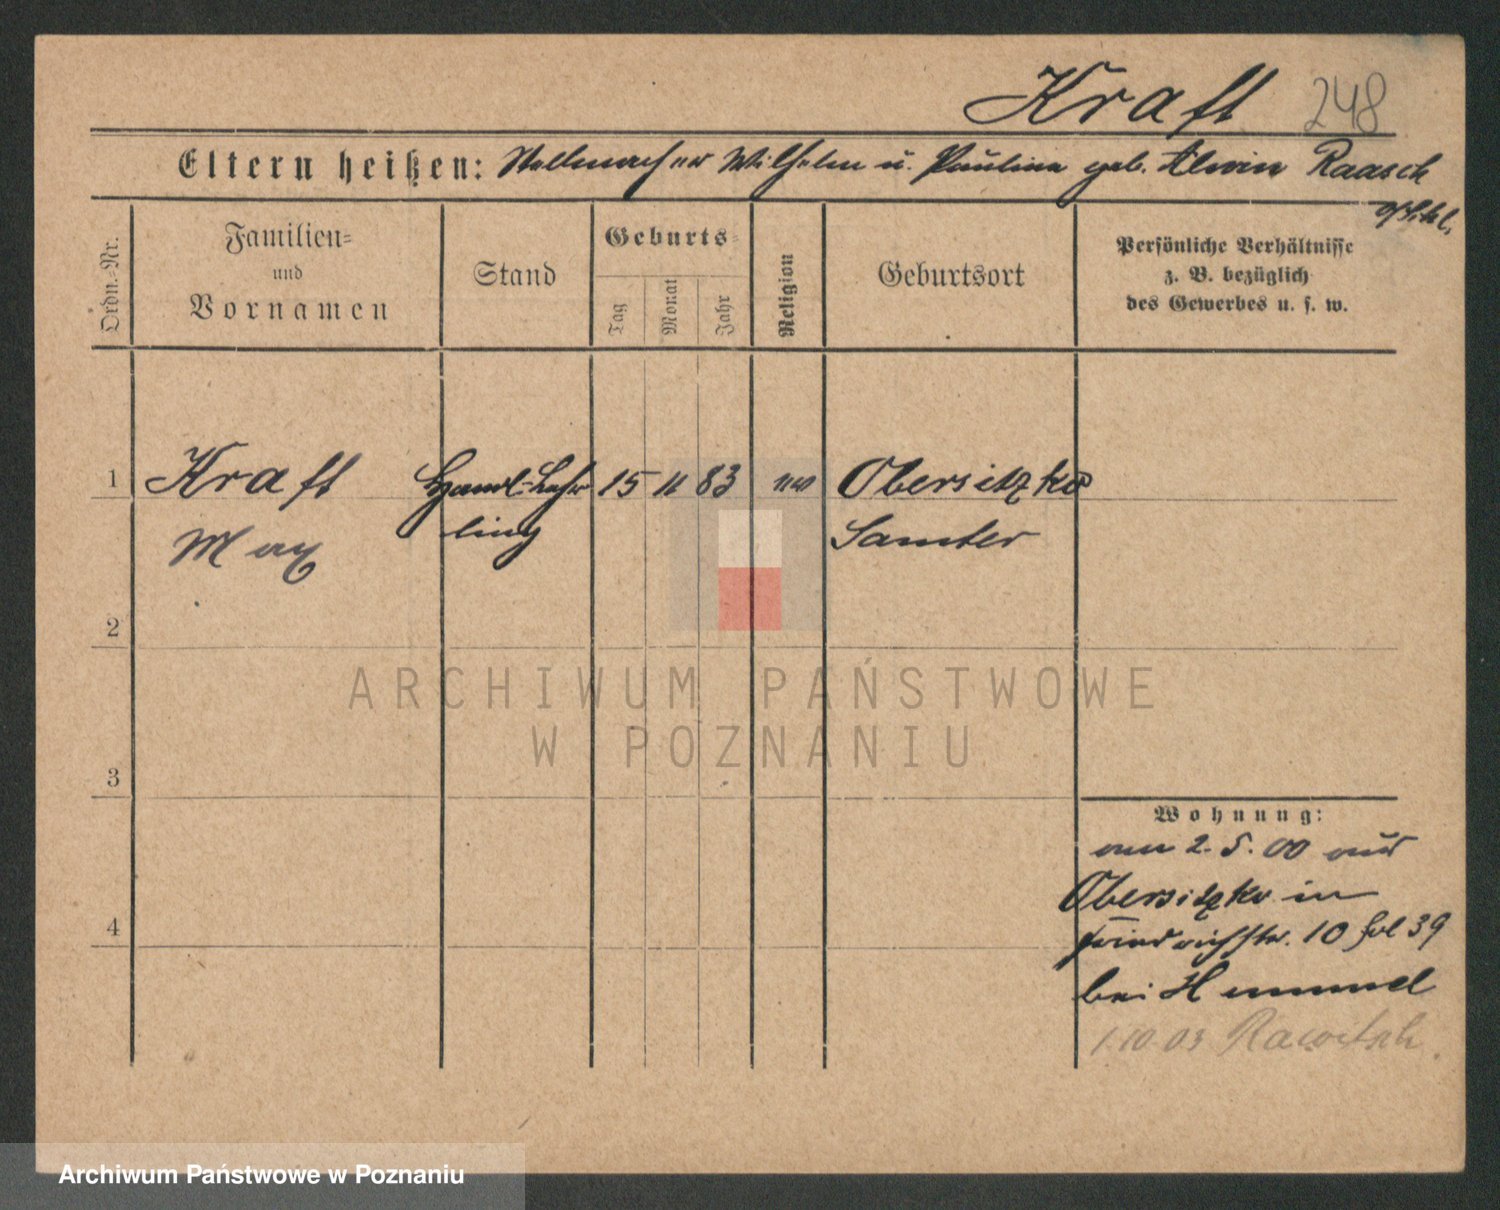 Kraft 248
Eltern heißen: Stellmacher Wilhelm u. Pauline geb. Alwin Raasch
Ordn.-Nr.
Familien-
und
Vornamen
Stand
Geburts-
Tag
Monat
Jahr
Religion
Geburtsort
Persönliche Verhältnisse
z. B. bezüglich
des Gewerbes u. s. w.
1 Kraft Handl.-Lehr 15 11 83 ev Obersitzko
Max ling Samter
2
3
4
ARCHIWUM PAŃSTWOWE
W POZNANIU
Wohnung:
am 2. 5. 00 aus
Obersitzko in
Friedrichstr. 10 fol 39
bei Hummel
1.10.03 Rawitsch
Archiwum Państwowe w Poznaniu